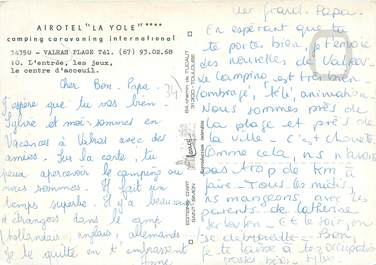 AIROTEL "LA YOLE" ****
camping caravaning international
34350 - VALRAS PLAGE Tél. (67) 93.02.68
10. L'entrée, les jeux,
le centre d'acceuil.
Cher Bon-Papa
J'espère que tu vas bien.
Sylvie et moi sommes en
Vacances à Valras avec des
amies. Sur la carte, tu
peux apercevoir le camping où
nous sommes. Il fait un
temps superbe. Il y a beaucoup
d'étrangers dans le camp
(hollandais, anglais, allemands
Je te quitte en t'embrassant
Anne
EDITIONS D'ART
31300-TOULOUSE
Reproduction interdite
Cher Grand-Papa.
En espérant que tu
te portes bien, j'envoie
des nouvelles de Valras.
Le camping est très bien
ombragé, télé, animation!
Nous sommes près de
la plage et près de
la ville - C'est chouette
Comme cela, ns n'avons
pas trop de km à
faire. Tous les midis,
ns mangeons avec les
parents de Catherine
et le soir on
se débrouille - Bon!
Je te laisse à tes occupations
grosses bises.